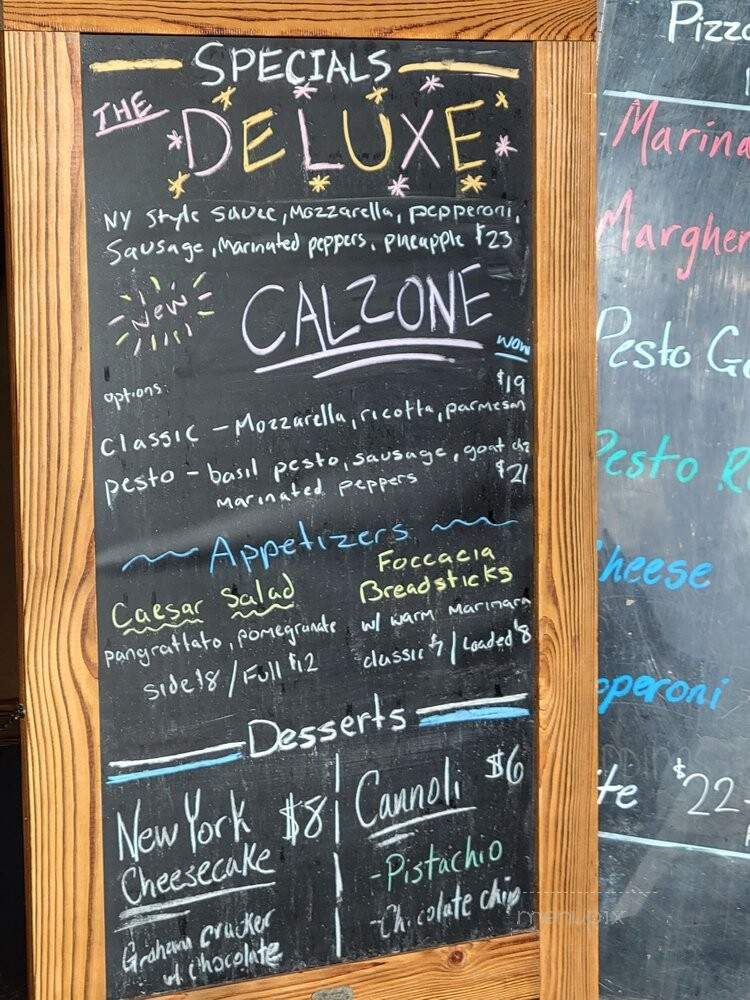 SPECIALS
THE
DELUXE
NY Style Sauce, Mozzarella, pepperoni,
Sausage, Marinated peppers, pineapple $23
New
CALZONE
WOW
options:
$19
Classic - Mozzarella, ricotta, parmesan
pesto - basil pesto, sausage, goat chz
Marinated Peppers
$21
Appetizers
Caesar Salad
pangrattato, pomegranate
side $8 / Full $12
Foccacia
Breadsticks
w/ warm Marinara
classic $7 / Loaded $8
Desserts
New York $8
Cheesecake
Graham cracker
w/ chocolate
Cannoli $6
- Pistachio
- Chocolate chip
Pizz
Marina
Margher
Pesto G
Pesto R
heese
pperoni
te $22
menupix